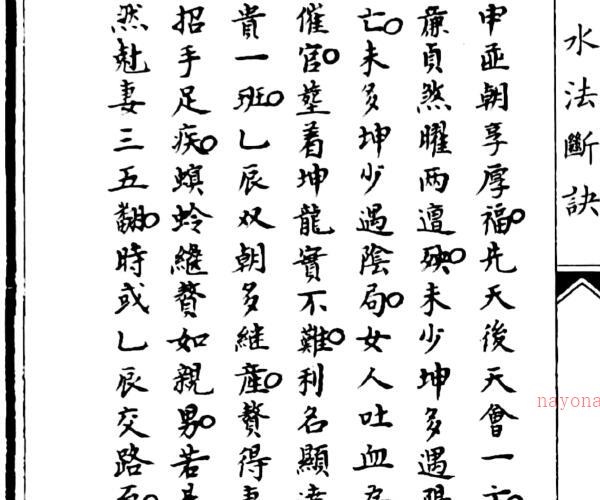 水法斷訣
申亜朝享厚福○先天後天會一
廉貞煞曜两邅殃○未少坤多遇陽
亡○未多坤少遇陰局○女人吐血
催官○塟着坤龍實不難○利名顯達
貴一班○乚辰双朝多継產○贅得妻
招手足疾○螟蛉繼贅如親男○若是
然尅妻三五翻○時或乚辰交路
nayona